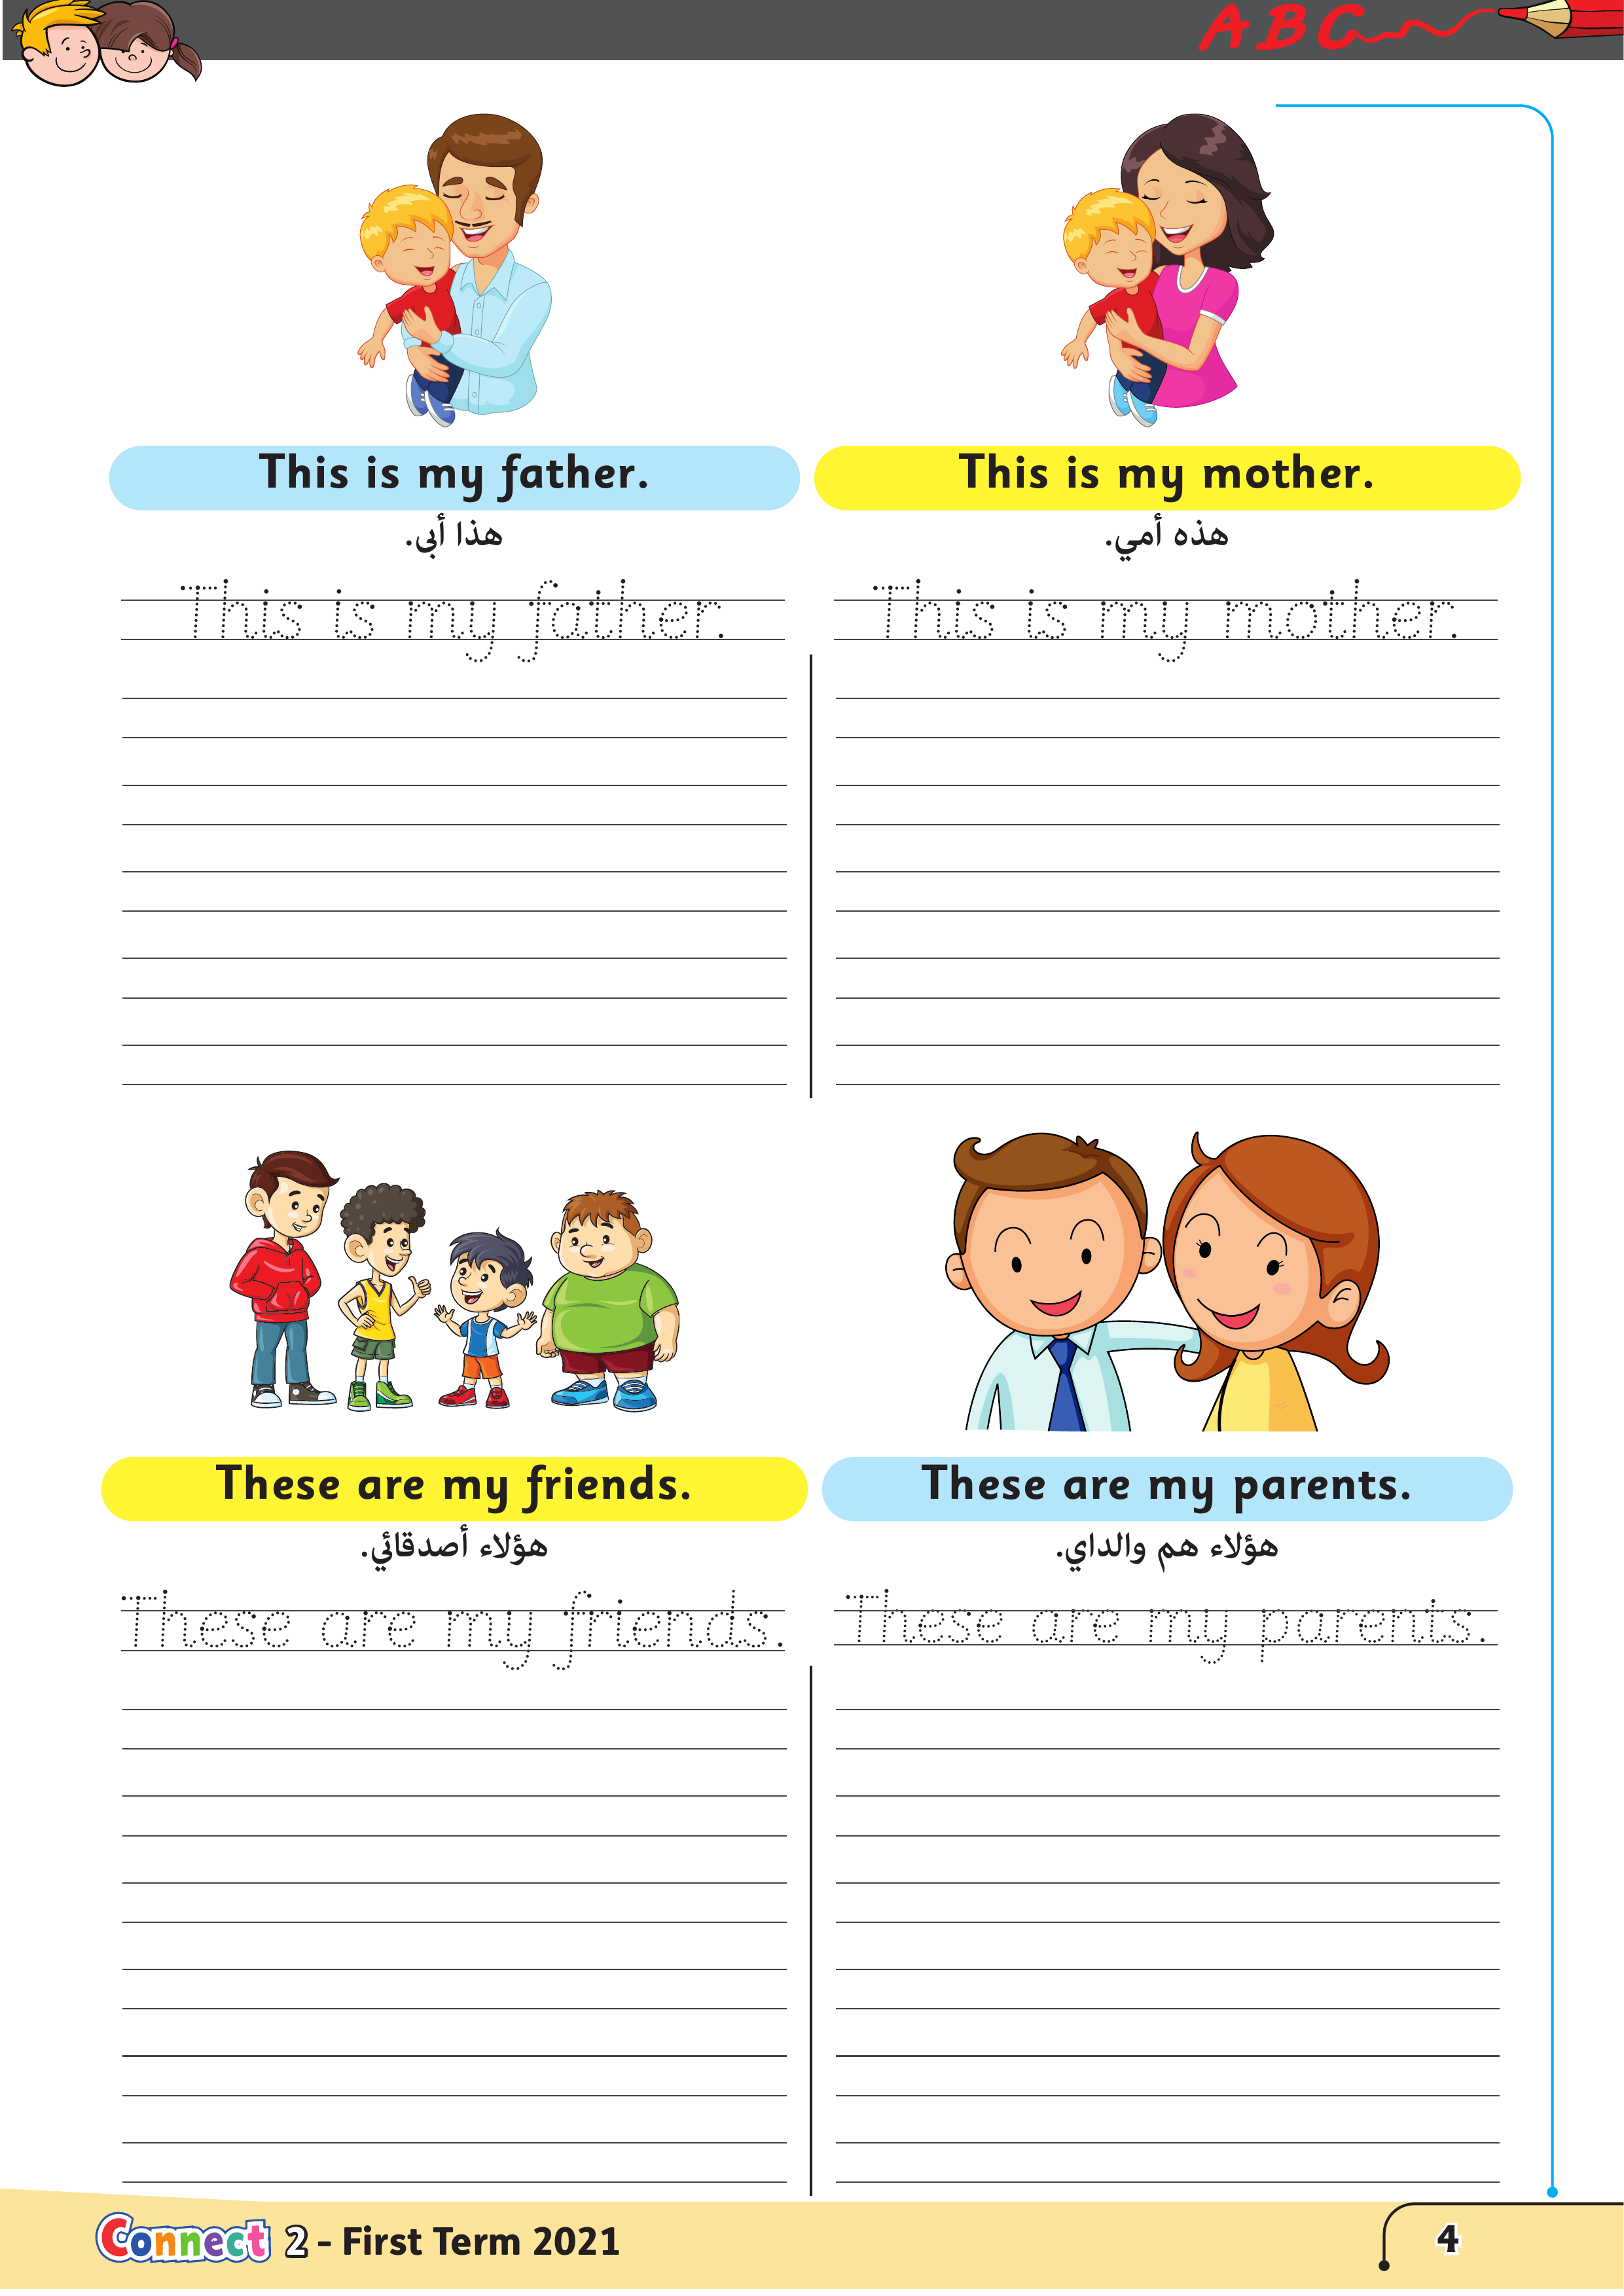 ABC
This is my father.
هذا أبى.
This is my father.
This is my mother.
هذه أمي.
This is my mother.
These are my friends.
هؤلاء أصدقائي.
These are my friends.
These are my parents.
هؤلاء هم والداي.
These are my parents.
Connect 2 - First Term 2021
4